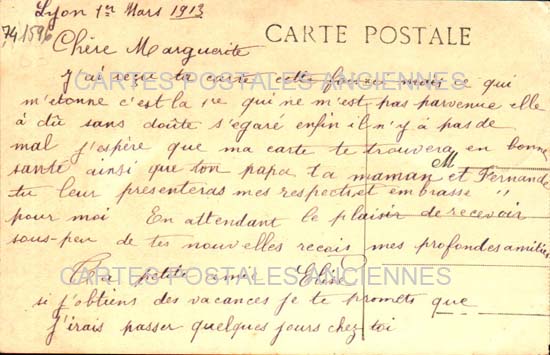 Lyon 1er Mars 1913
74/1596
CARTE POSTALE
Chère Marguerite
J'ai reçu ta carte cette mais ce qui
m'étonne c'est la 1re qui ne m'est pas parvenue elle
à dû sans doûte s'egaré enfin il n'y á pas de
mal j'espère que ma carte te trouvera en bonne
santé ainsi que ton papa ta maman et M Fernande
tu leur presenteras mes respects et embrasse "
pour moi En attendant le plaisir de recevoir
sous-peu de tes nouvelles reçois mes profondes amitiés
Ta petite amie
si j'obtiens des vacances je te promets que
j'irais passer quelques jours chez toi
CARTES POSTALES ANCIENNES
CARTES POSTALES ANCIENNES